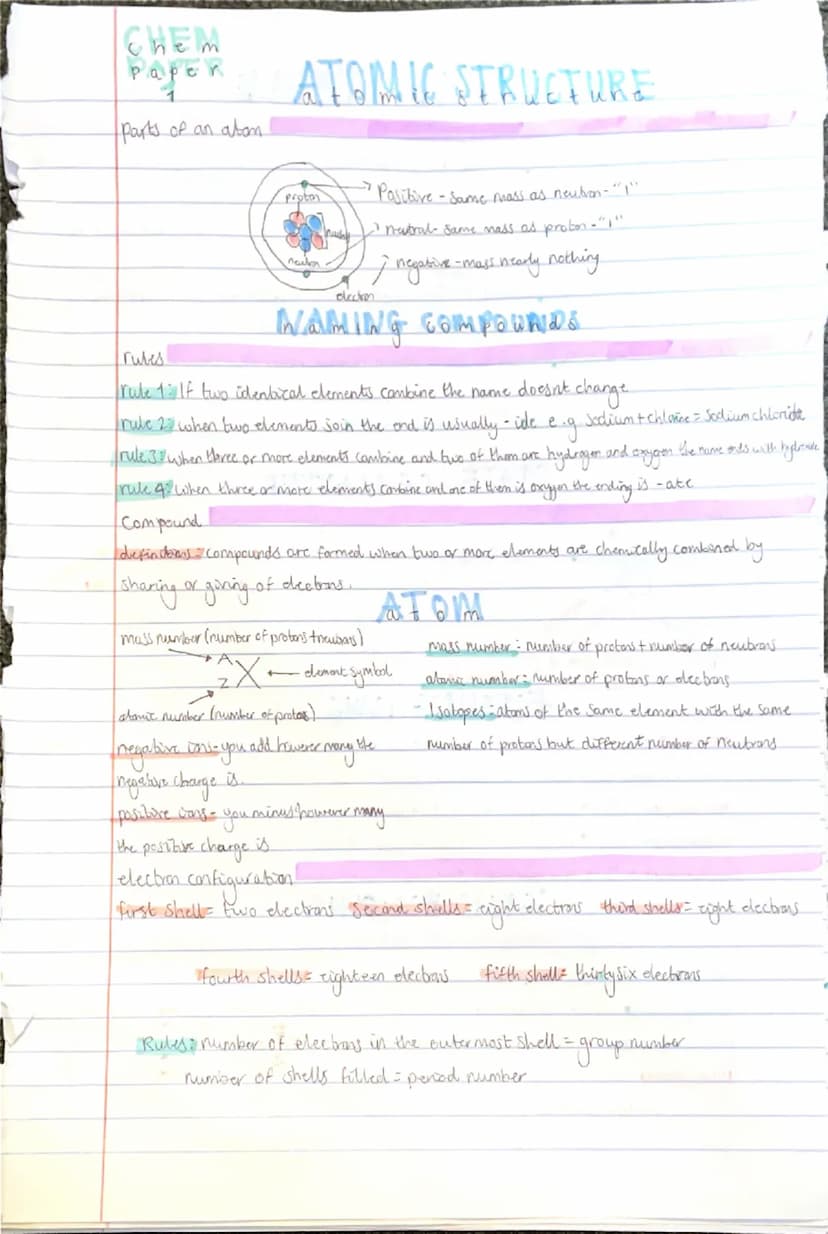 Chem
paper
1
ATOMIC STRUCTURE
atomic structure
parts of an atom
proton
nucleus
neutron
electron
Positive - same mass as neutron - "1"
neutral - same mass as proton - "1"
negative - mass nearly nothing
naming compounds
rules
rule 1: If two identical elements combine the name doesnt change
rule 2: when two elements join the end is usually - ide e.g sodium + chlorine = sodium chloride
rule 3: when three or more elements combine and two of them are hydrogen and oxygen the name ends with hydroxide
rule 4: when three or more elements combine and one of them is oxygen the ending is - ate
Compound
definitions: compounds are formed when two or more elements are chemically combined by
sharing or giving of electrons.
atom
mass number (number of protons + neutrons)
A
Z X ← element symbol
atomic number (number of protons)
negative ions - you add however many the
negative charge is.
positive ions - you minus however many
the positive charge is
mass number: number of protons + number of neutrons
atomic number: number of protons or electrons
Isotopes: atoms of the same element with the same
number of protons but different number of neutrons
electron configuration
first shell = two electrons second shells = eight electrons third shells = eight electrons
fourth shells = eighteen electrons fifth shell = thirtysix electrons
Rules: number of electrons in the outermost shell = group number
number of shells filled = period number